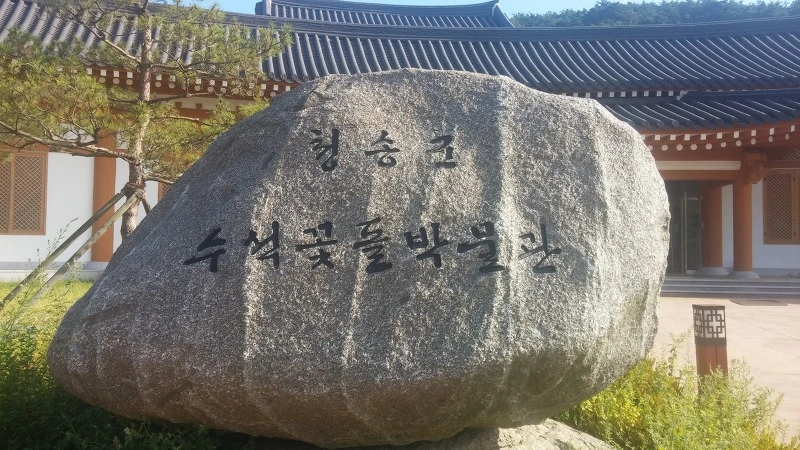 청송군
수석꽃돌박물관